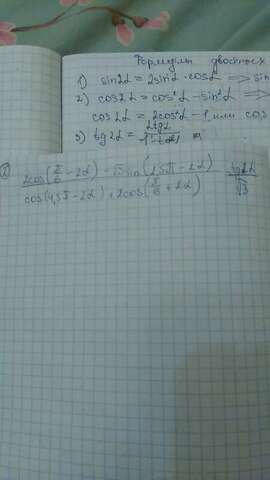 Формулы двойных
1) sin2α = 2sinα·cosα => sin
2) cos2α = cos²α - sin²α =>
cos2α = 2cos²α - 1, или cos
3) tg2α = 2tgα
2) 2cos(π/6 - 2α) - √3sin(2,5π - 2α) tg2α
cos(4,5π - 2α) + 2cos(π/6 + 2α) √3